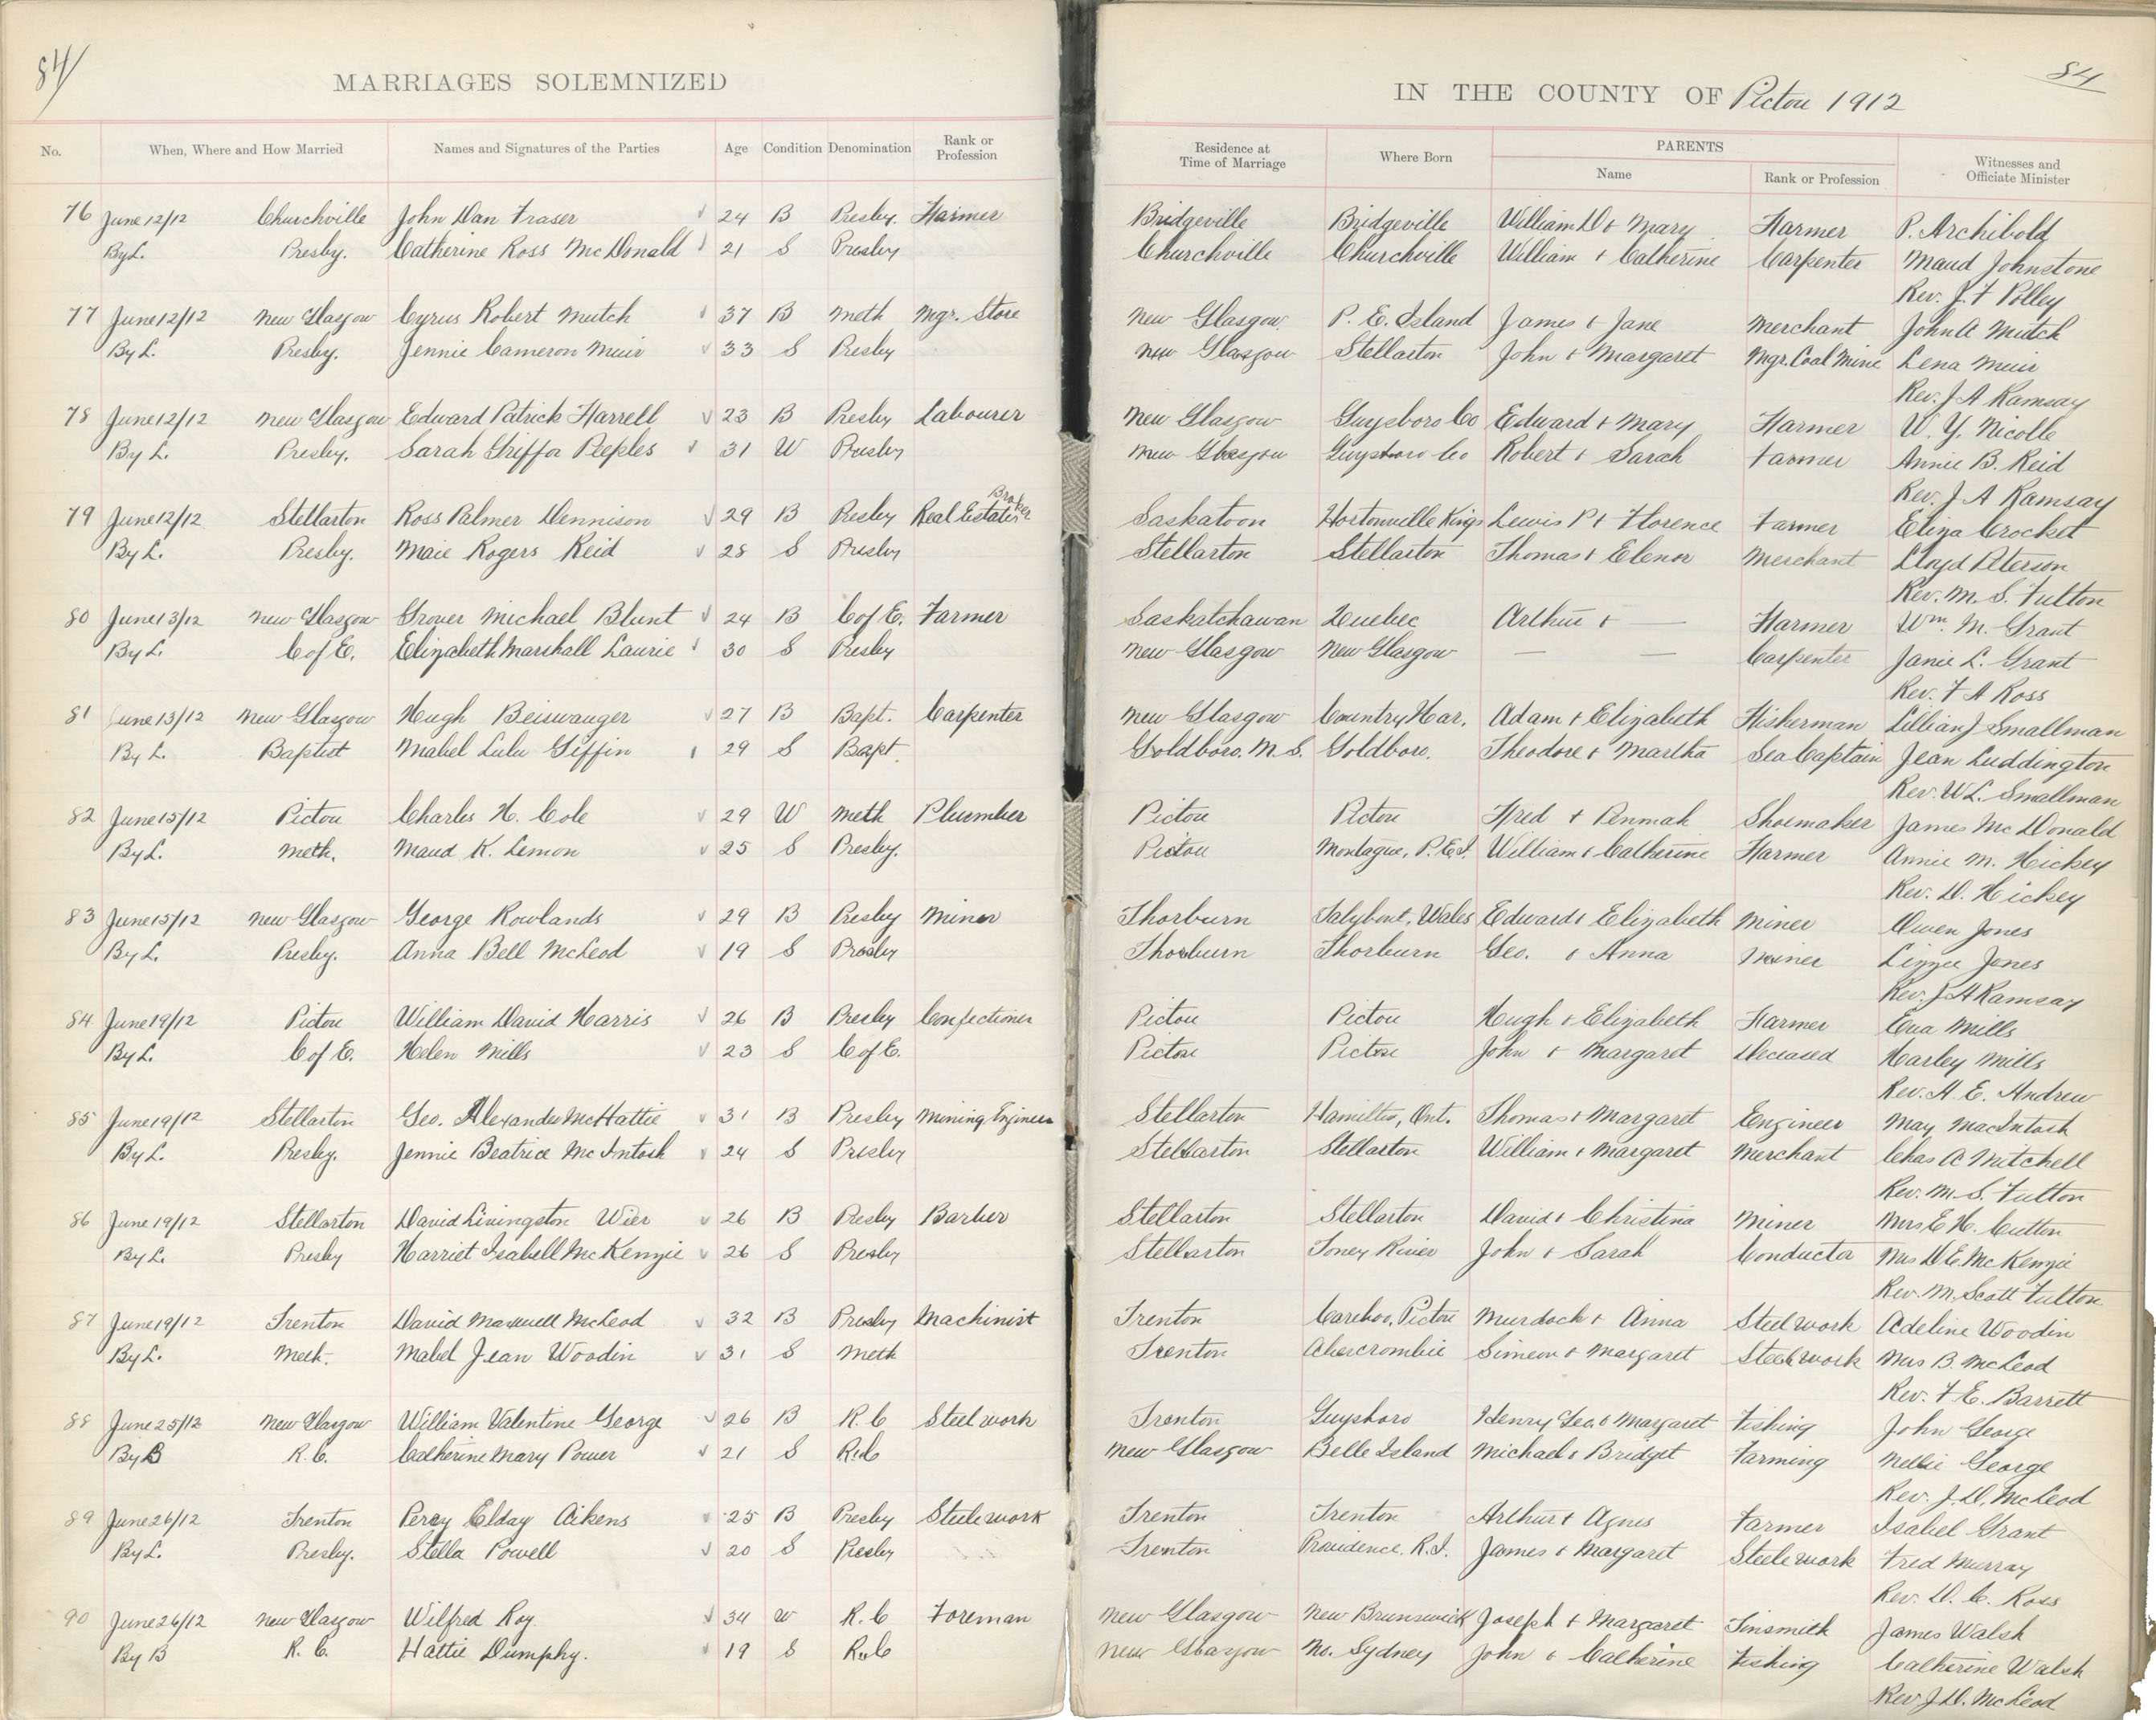 84
MARRIAGES SOLEMNIZED
No. When, Where and How Married Names and Signatures of the Parties Age Condition Denomination Rank or Profession
76 June 12/12 Churchville John Dan Fraser 24 B Presby. Farmer
By L. Presby. Catherine Ross McDonald 21 S Presby
77 June 12/12 New Glasgow Cyrus Robert Mutch 37 B Meth Mgr. Store
By L. Presby. Jennie Cameron Muir 33 S Presby
78 June 12/12 New Glasgow Edward Patrick Harrell 23 B Presby Labourer
By L. Presby. Sarah Peeples 31 W Presby
79 June 12/12 Stellarton Ross Palmer Dennison 29 B Presby Real Estate Broker
By L. Presby. Maie Rogers Reid 28 S Presby
80 June 13/12 New Glasgow Grover Michael Blunt 24 B C of E. Farmer
By L. C of E. Elizabeth Marshall Laurie 30 S Presby
81 June 13/12 New Glasgow Hugh Beiswanger 27 B Bapt. Carpenter
By L. Baptist Mabel Lulu Giffin 29 S Bapt.
82 June 15/12 Pictou Charles H. Cole 29 W Meth Plumber
By L. Meth. Maud K. Lemon 25 S Presby.
83 June 15/12 New Glasgow George Rowlands 29 B Presby Miner
By L. Presby. Anna Bell McLeod 19 S Presby
84 June 19/12 Pictou William David Harris 26 B Presby Confectioner
By L. C of E. Helen Mills 23 S C of E.
85 June 19/12 Stellarton Geo. Alexander McHattie 31 B Presby Mining Engineer
By L. Presby. Jennie Beatrice McIntosh 24 S Presby
86 June 19/12 Stellarton David Livingston Wier 26 B Presby Barber
By L. Presby Harriet Isabell McKenzie 26 S Presby
87 June 19/12 Trenton David Maxwell McLeod 32 B Presby Machinist
By L. Meth. Mabel Jean Woodin 31 S Meth
88 June 25/12 New Glasgow William Valentine George 26 B R.C Steel work
By B R.C. Catherine Mary Power 21 S R.C
89 June 26/12 Trenton Percy Elday Aikens 25 B Presby Steelework
By L. Presby. Stella Powell 20 S Presby
90 June 26/12 New Glasgow Wilfred Roy. 34 W R.C Foreman
By B R.C. Hattie Dumphy. 19 S R.C
84
IN THE COUNTY OF Pictou 1912
Residence at Time of Marriage Where Born PARENTS Name Rank or Profession Witnesses and Officiate Minister
Bridgeville Bridgeville William D + Mary Farmer P. Archibold
Churchville Churchville William + Catherine Carpenter Maud Johnstone
Rev. J. F Polley
New Glasgow P. E. Island James + Jane Merchant John A Mutch
New Glasgow Stellarton John + Margaret Mgr. Coal Mine Lena Muir
Rev. J A Ramsay
New Glasgow Guysboro Co Edward + Mary Farmer W. Y. Nicolle
New Glasgow Guysboro Co Robert + Sarah Farmer Annie B. Reid
Rev. J A Ramsay
Saskatoon Hortonville Kings Lewis P + Florence Farmer Eliza Crocket
Stellarton Stellarton Thomas + Elenor Merchant Lloyd Peterson
Rev. M. S. Fulton
Saskatchawan Quebec Arthur + — Farmer Wm. M. Grant
New Glasgow New Glasgow — — Carpenter Janie L. Grant
Rev. F A Ross
New Glasgow Country Har. Adam + Elizabeth Fisherman Lillian J Smallman
Goldboro. N. S. Goldboro. Theodore + Martha Sea Captain Jean Luddington
Rev. W L. Smallman
Pictou Pictou Fred + Penmah Shoemaker James McDonald
Pictou Montague, P.E.I. William + Catherine Farmer Annie M. Hickey
Rev. D. Hickey
Thorburn Talybont, Wales Edward + Elizabeth Miner Owen Jones
Thorburn Thorburn Geo. + Anna Miner Lizzie Jones
Rev. J A Ramsay
Pictou Pictou Hugh + Elizabeth Farmer Eva Mills
Pictou Pictou John + Margaret Deceased Harley Mills
Rev. A. E. Andrew
Stellarton Hamilton, Ont. Thomas + Margaret Engineer May MacIntosh
Stellarton Stellarton William + Margaret Merchant Chas A Mitchell
Rev. M. S. Fulton
Stellarton Stellarton David + Christina Miner Mrs E H. Cutton
Stellarton Toney River John + Sarah Conductor Mrs D E. McKenzie
Rev. M. Scott Fulton
Trenton Cariboo, Pictou Murdock + Anna Steel work Adeline Woodin
Trenton Abercrombie Simeon + Margaret Steel work Mrs B. McLeod
Rev. F. E. Barrett
Trenton Guysboro Henry Geo. + Margaret Fishing John George
New Glasgow Belle Island Michael + Bridget Farming Nellie George
Rev. J. D. McLeod
Trenton Trenton Arthur + Agnes Farmer Isabel Grant
Trenton Providence. R.I. James + Margaret Steelework Fred Murray
Rev. D. C. Ross
New Glasgow New Brunswick Joseph + Margaret Tinsmith James Walsh
New Glasgow No. Sydney John + Catherine Fishing Catherine Walsh
Rev. J. D. McLeod